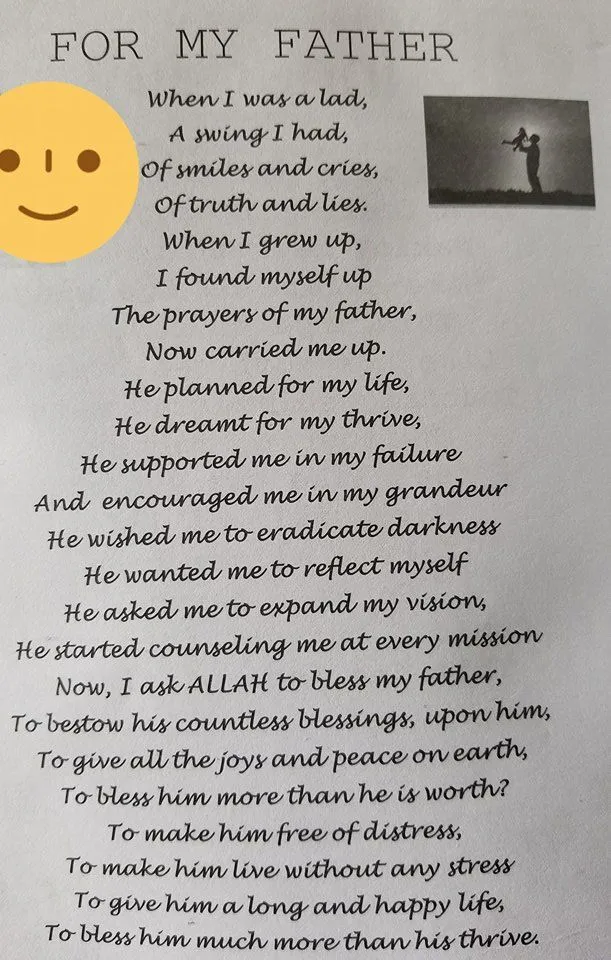 FOR MY FATHER
When I was a lad,
A swing I had,
Of smiles and cries,
Of truth and lies.
When I grew up,
I found myself up
The prayers of my father,
Now carried me up.
He planned for my life,
He dreamt for my thrive,
He supported me in my failure
And encouraged me in my grandeur
He wished me to eradicate darkness
He wanted me to reflect myself
He asked me to expand my vision,
He started counseling me at every mission
Now, I ask ALLAH to bless my father,
To bestow his countless blessings, upon him,
To give all the joys and peace on earth,
To bless him more than he is worth?
To make him free of distress,
To make him live without any stress
To give him a long and happy life,
To bless him much more than his thrive.